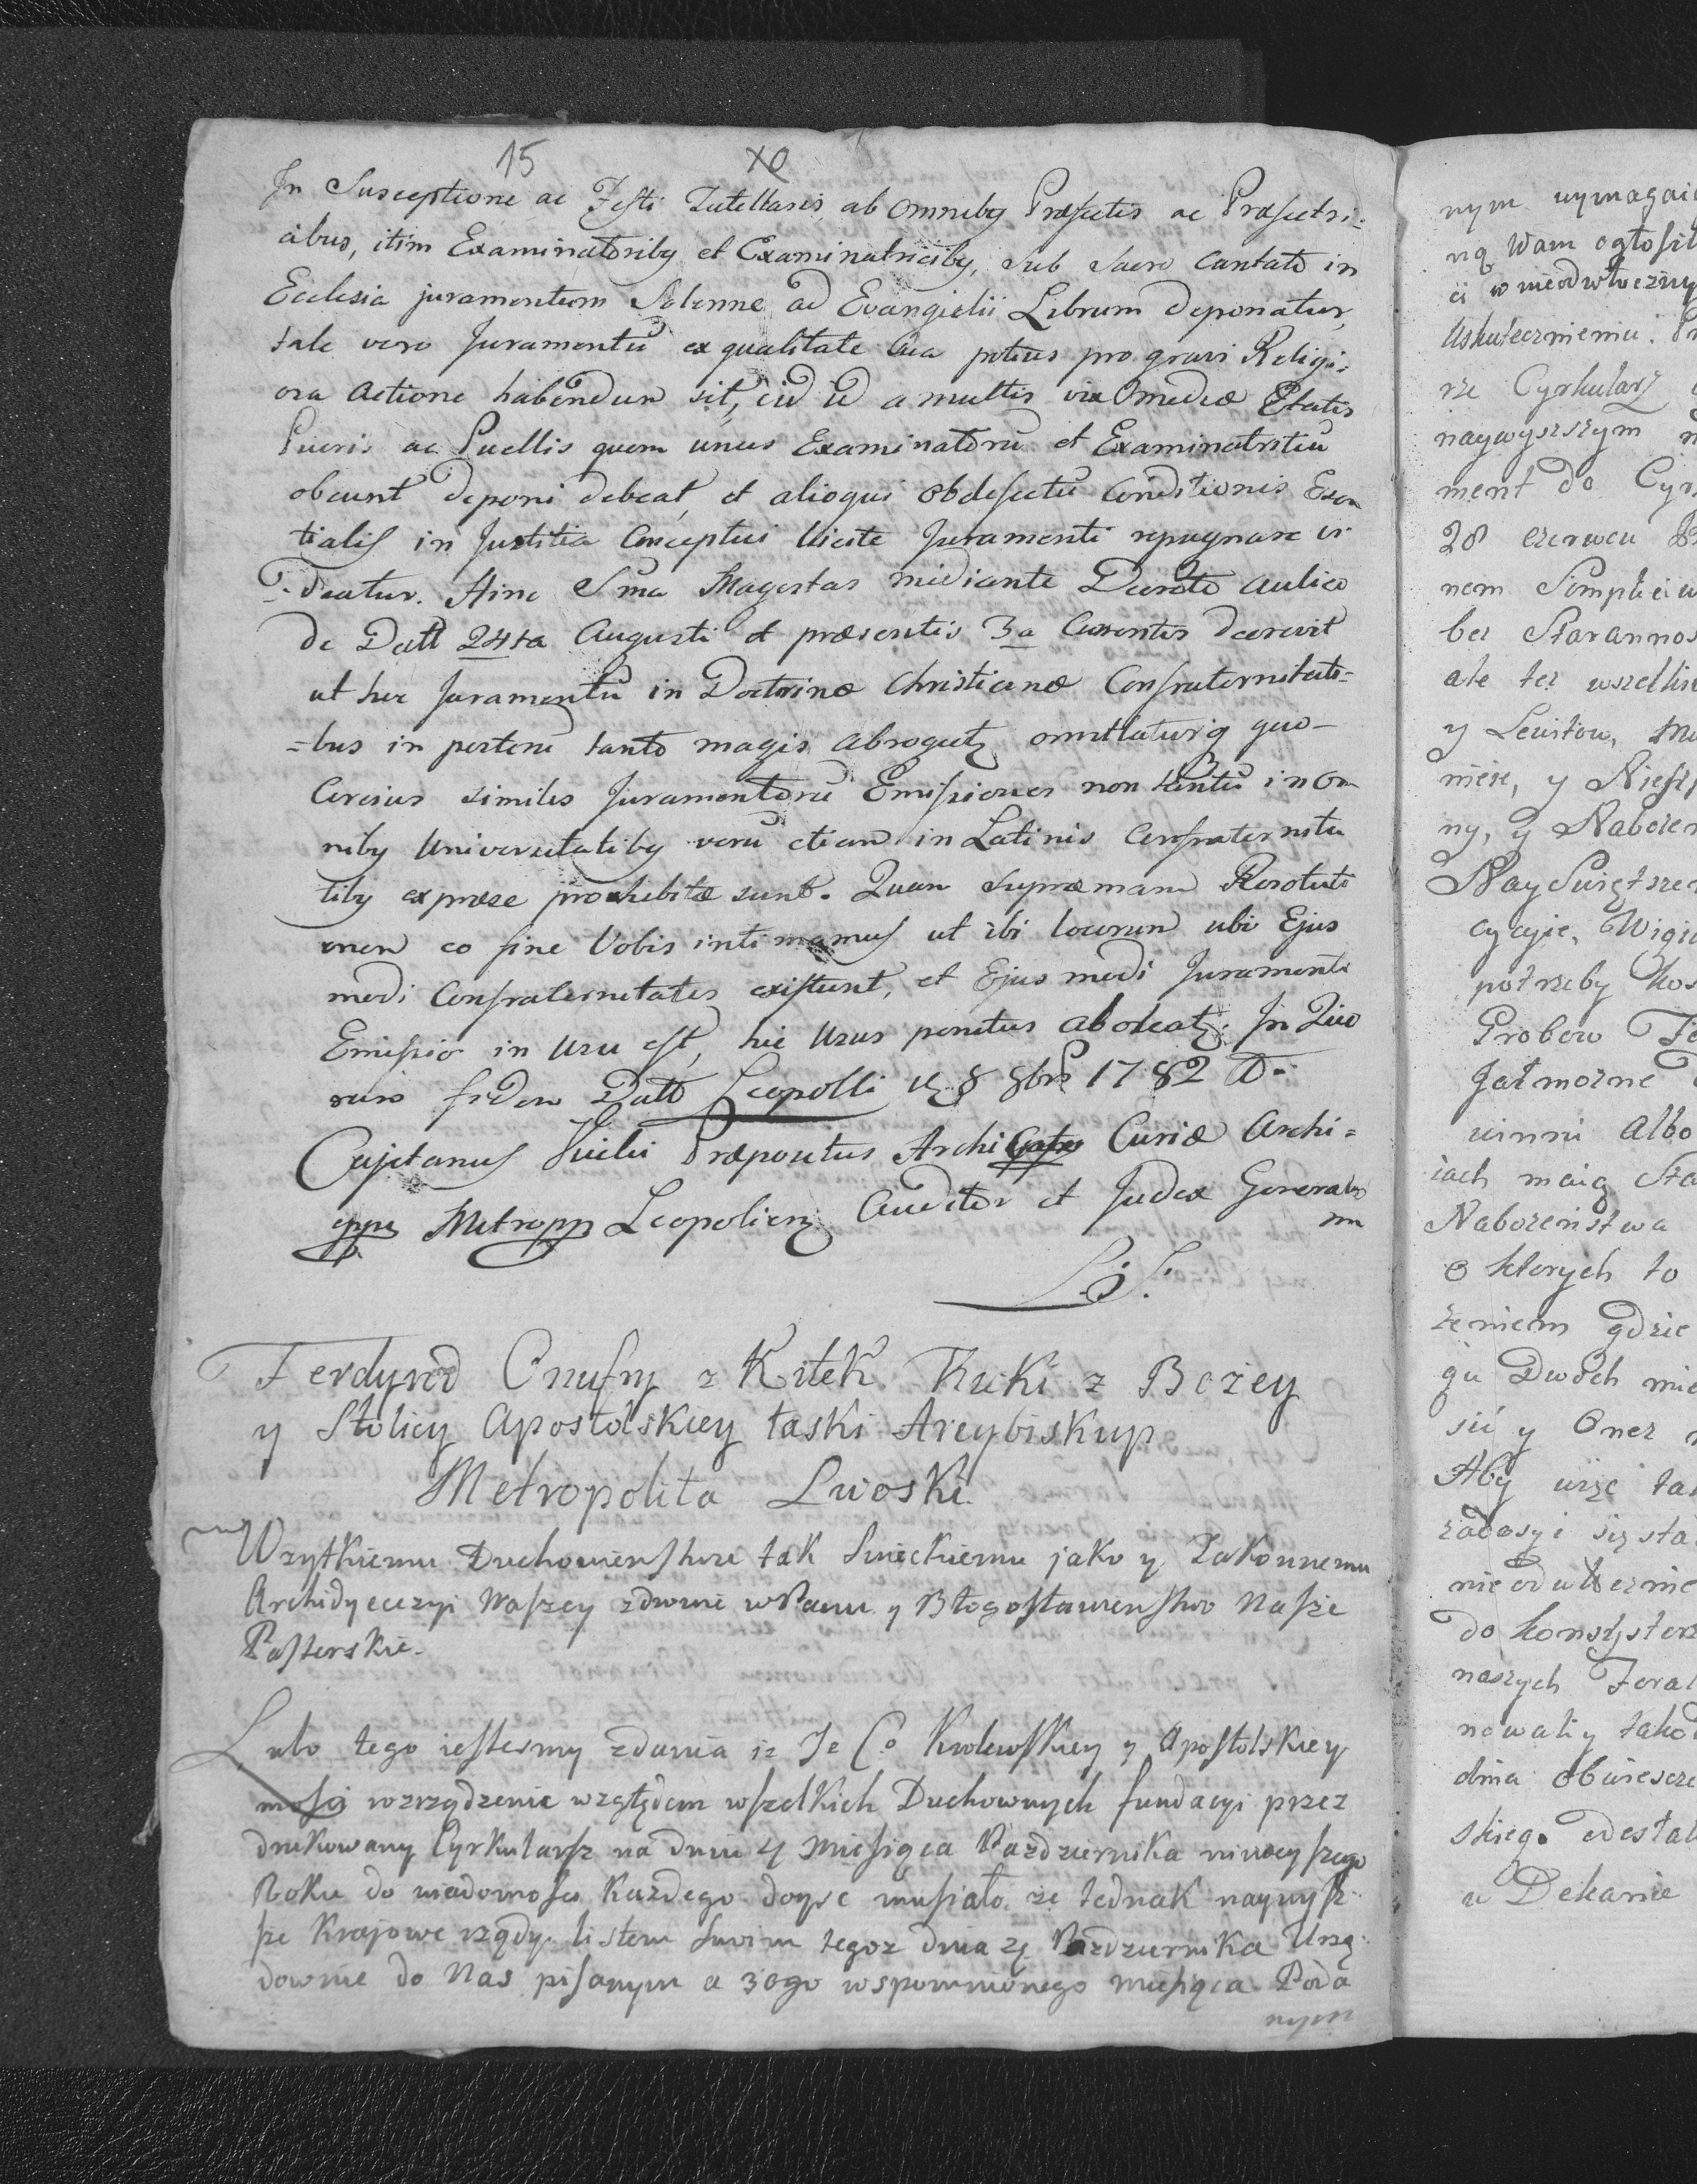 15 XO
In Susceptione ac Festi Tutellaris, ab Omniby Præfectis ac Præfectri=
cibus, itim Examinatoriby et Examinatriciby, sub Sacro cantato in
Ecclesia juramentum Solenne ad Evangielii Librum deponatur,
tale vero Juramentū ex qualitate sua potius pro gravi Religi:
osa Actione habendum sit, a multis vix mediæ Etatis
Pueris ac Puellis quem unus Examinatorū et Examinatriciū
obeunt deponi debeat, et alioqui ob defectū Conditionis Esen
tialis in Justitia Conceptui licite Juramenti repugnare vi
deatur. Hinc Sma Magestas mediante Decreto aulico
de Datt 24ta Augusti et præsentis 3a Currentis decrevit
ut hec Juramentū in Doctrinæ Christianæ Confraternitati=
=bus in posterū tanto magis abrogetz omittaturq quo-
Cercius similes Juramentorū Emissiones non tantū in Om
niby Universitatiby verū etiam in Latinis Confraternita
tiby exprese prohibitæ sunt. Quam supræmam Resoluti
onem eo fine Vobis intimamus ut ibi locorum ubi Ejus
modi Confraternitates existunt, et Ejus modi Juramenti
Emissio in usu est, hic Usus penitus aboleatz. In Quo
rum fidem Datt Leopolli 8 8bris 1782 A-
Cajetanus Præpositus Archi Curiæ Archi=
eppe Metropp Leopolienz Auditor et Judex Generalis
mm
L. S.
Ferdynd Onufry z Kitek Kicki z Bożey
y Stolicy Apostolskiey łaski Arcybiskup
Metropolita Lwoski
Wzytkiemu Duchowienstwu tak Swieckiemu jako y Zakonnemu
Archidyecezyi Naszey zdrowie w Panu y Błogosławienstwo Nasze
Pasterskie.
Lubo tego iestesmy zdania iz Je Co Krolewskiey y Apostolskiey
mości rozrządzenie względem wszelkich Duchownych fundacyi przez
drukowany Cyrkularz na dniu 4 Miesiąca Pazdziernika ninieyszego
Roku do wiadomości Każdego doyść musiało, ze Jednak naywysz
sze Krajowe rządy listem swoim tegoz dnia 4 Pazdziernika Urzę
downie do Nas pisanym a 30go wspomnionego miesiąca Poda
nym
nym wymagaią
ną Wam ogłosil
ci w nieodwłoczny
Uskutecznieniu.
rze Cyrkularz
naywyszszym
ment do Cyr
28 czerwca
nem Simplici
bez Starannos
ale tez wszelki
y Lewitow,
niere, y Niesz
ny, y Nabożen
Nay Swiętszey
cyacyie, Wigi
potrzeby Kos
Probow
Jałmozne
winni Albo
iach maią Sta
Nabozenstwa
o ktorych to
zeniem gdzie
gu Dwoch mie
sić y Onez
Aby więc tak
zadosyi się sta
nieodwłocznie
do Konsystorz
naszych Foral
nowali y takow
dnia obwiescze
skiego odesłal
w Dekanie